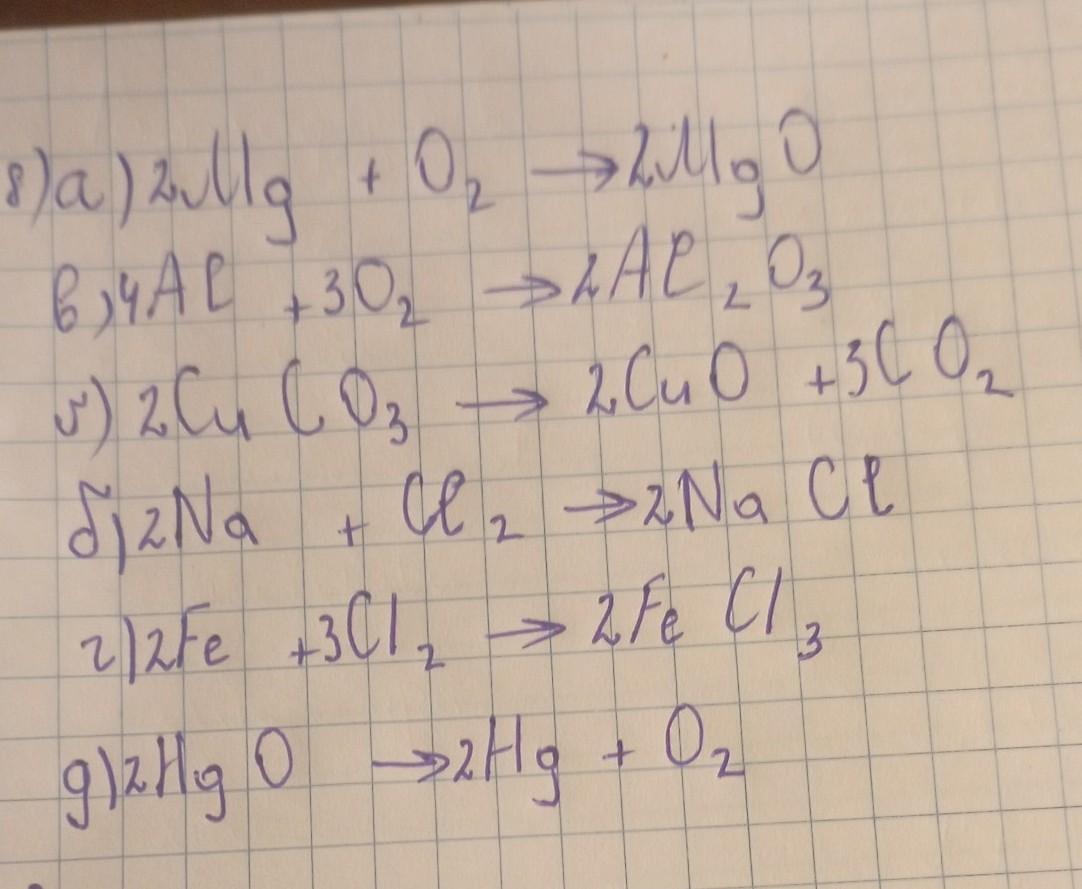 8) а) 2Mg + O₂ → 2MgO
в) 4Al + 3O₂ → 2Al₂O₃
б) 2CuCO₃ → 2CuO + 3CO₂
б) 2Na + Cl₂ → 2NaCl
г) 2Fe + 3Cl₂ → 2FeCl₃
д) 2HgO → 2Hg + O₂